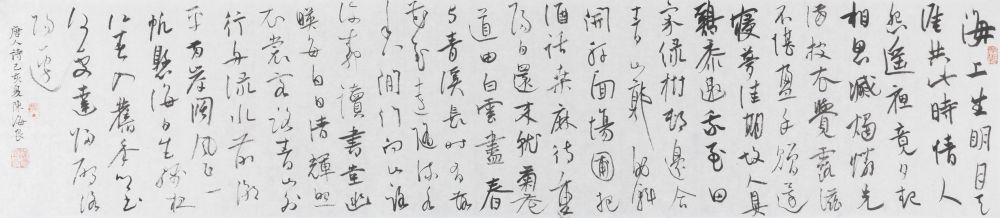 海上生明月天
涯共此時情人
怨遙夜竟夕起
相思滅燭憐光
滿披衣覺露滋
不堪盈手贈還
寢夢佳期故人具
雞黍邀我至田
家綠樹村邊合
青山郭外斜
開軒面場圃把
酒話桑麻待重
陽日還來就菊花
道由白雲盡春
與青溪長時有落
花至遠隨流水
香閒門向山路
深柳讀書堂幽
映每白日清輝照
衣裳客路青山外
行舟綠水前潮
平兩岸闊風正一
帆懸海日生殘夜
江春入舊年鄉書
何處達歸雁洛
陽邊
唐人詩己亥夏陳海良